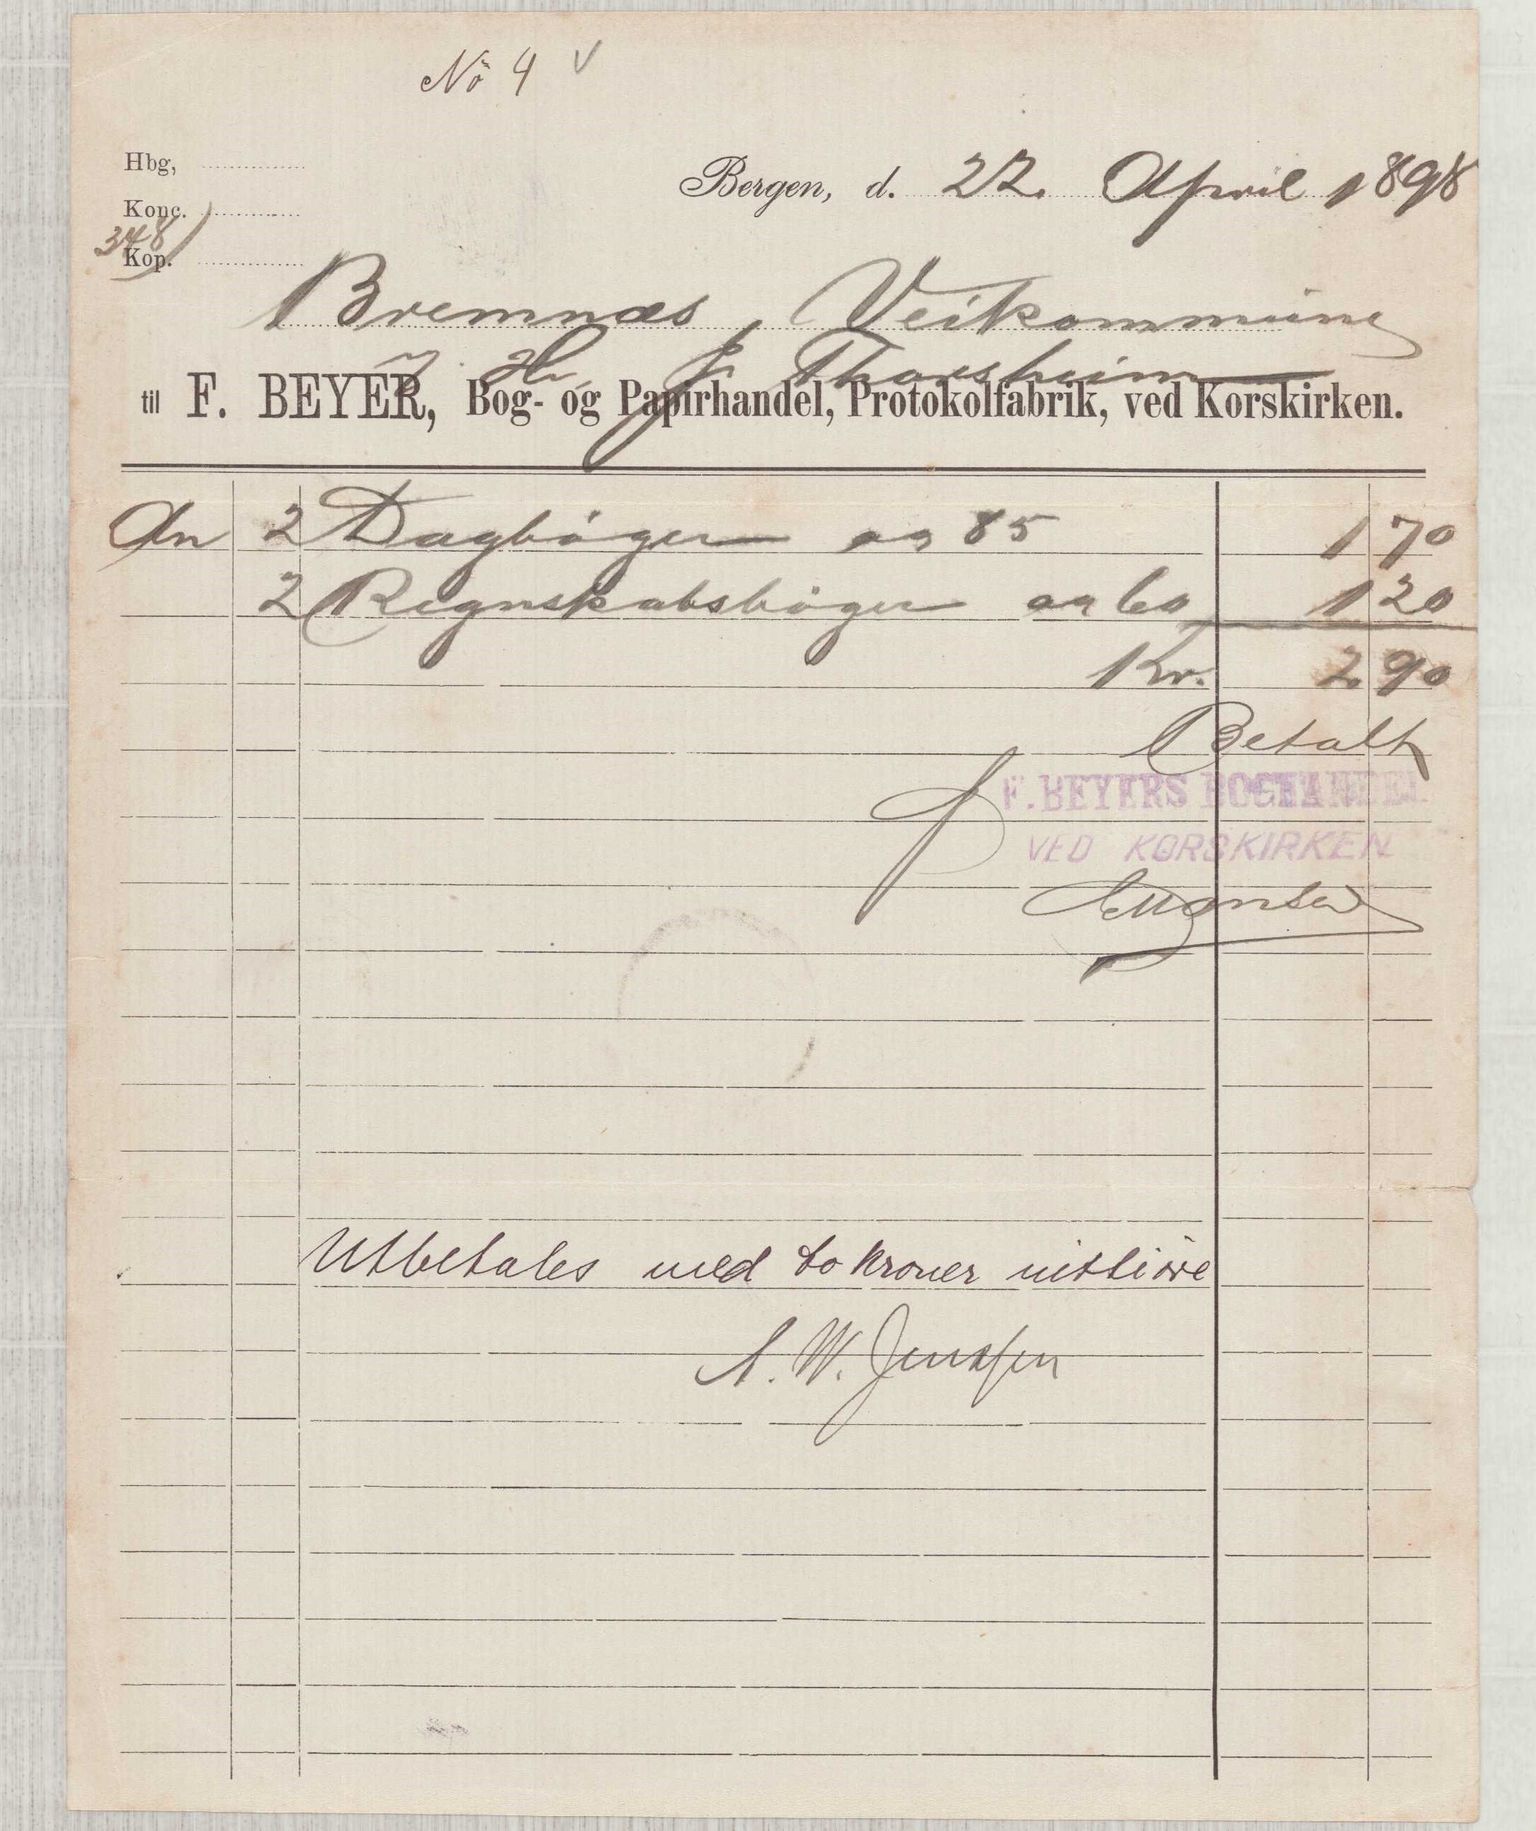 No 4 v
Hbg,
Bergen, d. 22. April 1898
Konc.
348
Kop.
Bremnæs Veikommune
Hr. J. Thorsheim
til F. BEYER, Bog- og Papirhandel, Protokolfabrik, ved Korskirken.
An 2 Dagbøger og 85 1 70
2 Regnskabsbøger og 60 1 20
Kr. 2 90
Betalt
F. BEYERS BOGHANDEL
VED KORSKIRKEN
Utbetales med to kroner nitti øre
A. W. Jenssen